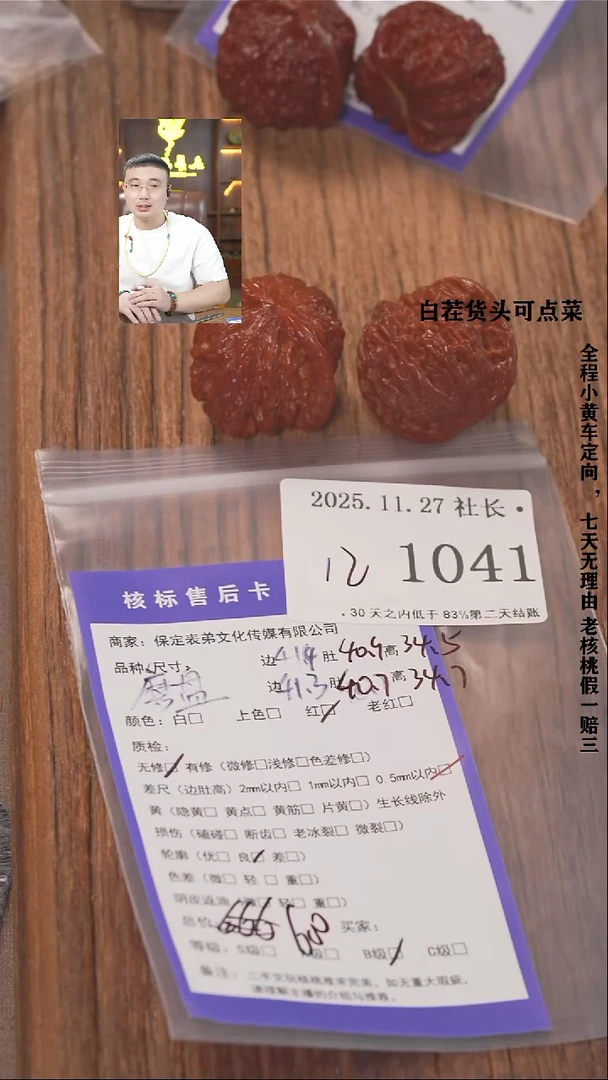 白茬货头可点菜
全程小黄车定向，七天无理由 老核桃假一赔三
2025.11.27 社长·
12 1041
.30天之内低于83%第二天结账
核标售后卡
商家：保定表弟文化传媒有限公司
品种/尺寸： 边41.4 肚40.9高34.5
磨盘 边41.3 肚40.7高34.7
颜色：白□ 上色□ 红☑ 老红□
质检：
无修☑ 有修（微修□浅修□色差修□）
差尺（边肚高）2mm以内□ 1mm以内□ 0.5mm以内☑
黄（隐黄□ 黄点□ 黄筋□ 片黄□）生长线除外
损伤（磕碰□ 断齿□ 老冰裂□ 微裂□）
轮廓（优□ 良☑ 差□）
色差（微□ 轻□ 重□）
阴皮返油（微□ 轻□ 重□）
总价 600 买家：
等级：S级□ A级□ B级☑ C级□
备注：二手文玩核桃难求完美，如无重大瑕疵，
请理解主播的介绍与推荐。